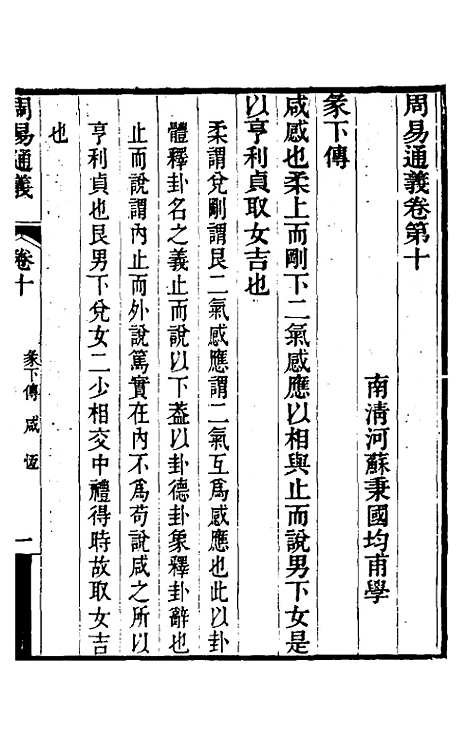 周易通義卷第十
南清河蘇秉國均甫學
彖下傳
咸感也柔上而剛下二氣感應以相與止而說男下女是
以亨利貞取女吉也
柔謂兌剛謂艮二氣感應謂二氣互爲感應也此以卦
體釋卦名之義止而說以下葢以卦德卦象釋卦辭也
止而說謂內止而外說篤實在內不爲苟說咸之所以
亨利貞也艮男下兌女二少相交中禮得時故取女吉
也
周易通義
卷十
彖下傳 咸 恆
一